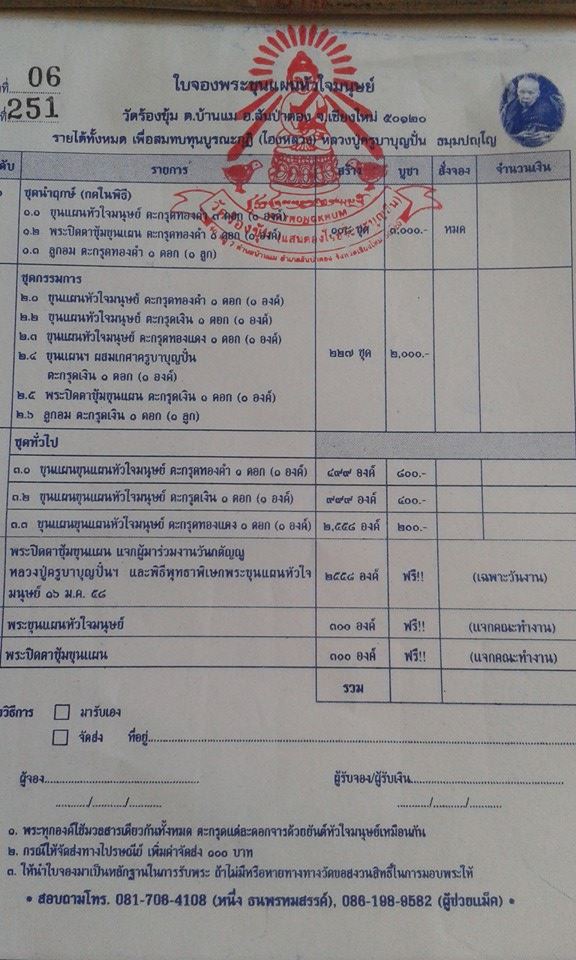 ที่ 06
ที่ 251
ใบจองพระขุนแผนหัวใจมนุษย์
วัดร้องขุ้ม ต.บ้านแม อ.สันป่าตอง จ.เชียงใหม่ ๕๐๑๒๐
รายได้ทั้งหมด เพื่อสมทบทุนบูรณะกุฏิ (โฮงหลวง) หลวงปู่ครูบาบุญปั๋น ธมฺมปญฺโญ
ดับ รายการ สร้าง บูชา สั่งจอง จำนวนเงิน
ชุดนำฤกษ์ (กดในพิธี)
๑.๑ ขุนแผนหัวใจมนุษย์ ตะกรุดทองคำ ๓ ดอก (๑ องค์)
๑.๒ พระปิดตาซุ้มขุนแผน ตะกรุดทองคำ ๑ ดอก (๑ องค์) ๑๐๘ ชุด ๓,๐๐๐.- หมด
๑.๓ ลูกอม ตะกรุดทองคำ ๑ ดอก (๑ ลูก)
RONGKHUM
ชุดกรรมการ
๒.๑ ขุนแผนหัวใจมนุษย์ ตะกรุดทองคำ ๑ ดอก (๑ องค์)
๒.๒ ขุนแผนหัวใจมนุษย์ ตะกรุดเงิน ๑ ดอก (๑ องค์)
๒.๓ ขุนแผนหัวใจมนุษย์ ตะกรุดทองแดง ๑ ดอก (๑ องค์)
๒.๔ ขุนแผนฯ ผสมเกศาครูบาบุญปั๋น ๒๒๗ ชุด ๒,๐๐๐.-
ตะกรุดเงิน ๑ ดอก (๑ องค์)
๒.๕ พระปิดตาซุ้มขุนแผน ตะกรุดเงิน ๑ ดอก (๑ องค์)
๒.๖ ลูกอม ตะกรุดเงิน ๑ ดอก (๑ ลูก)
ชุดทั่วไป
๓.๑ ขุนแผนขุนแผนหัวใจมนุษย์ ตะกรุดทองคำ ๑ ดอก (๑ องค์) ๔๙๙ องค์ ๘๐๐.-
๓.๒ ขุนแผนขุนแผนหัวใจมนุษย์ ตะกรุดเงิน ๑ ดอก (๑ องค์) ๙๙๙ องค์ ๔๐๐.-
๓.๓ ขุนแผนขุนแผนหัวใจมนุษย์ ตะกรุดทองแดง ๑ ดอก (๑ องค์) ๒,๕๕๘ องค์ ๒๐๐.-
พระปิดตาซุ้มขุนแผน แจกผู้มาร่วมงานวันกตัญญู
หลวงปู่ครูบาบุญปั๋นฯ และพิธีพุทธาพิเษกพระขุนแผนหัวใจ ๒๕๕๘ องค์ ฟรี!! (เฉพาะวันงาน)
มนุษย์ ๑๖ ม.ค. ๕๘
พระขุนแผนหัวใจมนุษย์ ๓๐๐ องค์ ฟรี!! (แจกคณะทำงาน)
พระปิดตาซุ้มขุนแผน ๓๐๐ องค์ ฟรี!! (แจกคณะทำงาน)
รวม
วิธีการ มารับเอง
จัดส่ง ที่อยู่
ผู้จอง ผู้รับจอง/ผู้รับเงิน
........../........../.......... ........../........../..........
๑. พระทุกองค์ใช้มวลสารเดียวกันทั้งหมด ตะกรุดแต่ละดอกจารด้วยยันต์หัวใจมนุษย์เหมือนกัน
๒. กรณีให้จัดส่งทางไปรษณีย์ เพิ่มค่าจัดส่ง ๑๐๐ บาท
๓. ให้นำใบจองมาเป็นหลักฐานในการรับพระ ถ้าไม่มีหรือหายทางทางวัดขอสงวนสิทธิ์ในการมอบพระให้
• สอบถามโทร. 081-706-4108 (หนึ่ง ธนพรหมสรรค์), 086-198-9582 (ผู้ช่วยแม็ค) •